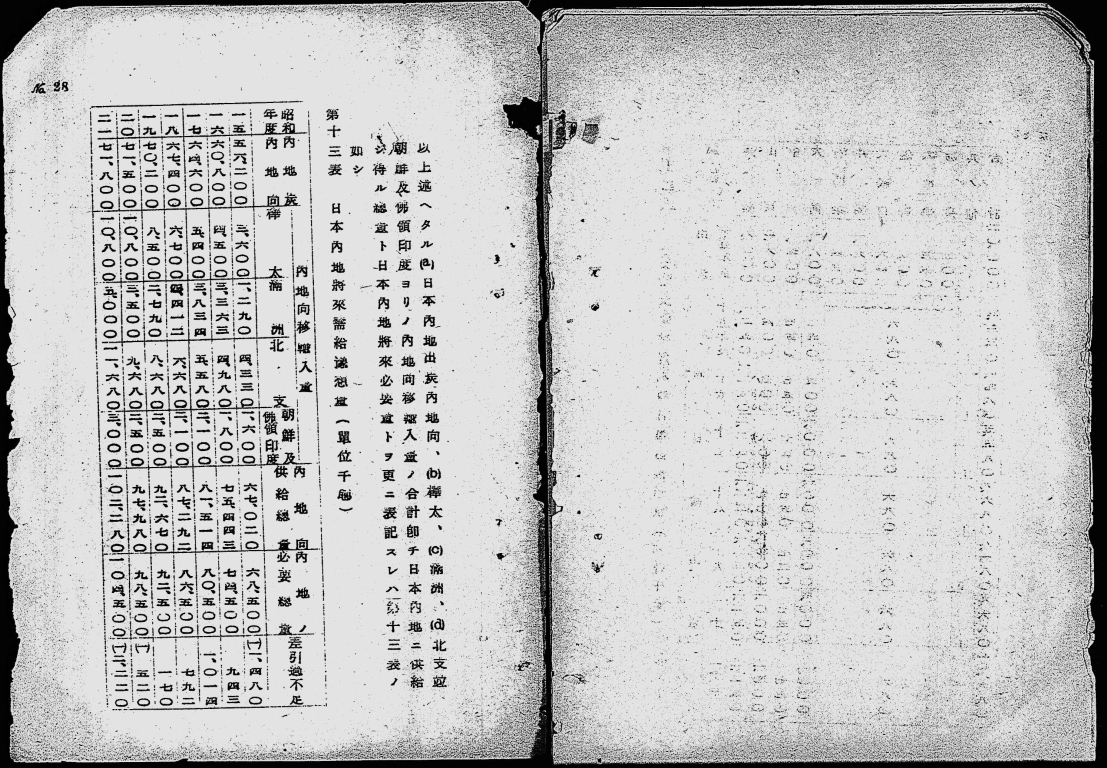 No. 28
以上述ヘタル(a)日本內地出炭內地向、(b)樺太、(c)滿洲、(d)北支竝
朝鮮及佛領印度ヨリノ內地向移輸入量ノ合計卽チ日本內地ニ供給
シ得ル總量ト日本內地將來必要量トヲ更ニ表記スレハ第十三表ノ
如シ
第十三表 日本內地將來需給豫想量(單位千瓲)
昭和年度 內地炭內地向 內地向移輸入量 樺太 滿洲 北支 朝鮮及佛領印度 內地向供給總量 內地ノ必要總量 差引過不足
一五 五六、二〇〇 三、六〇〇 一、二九〇 四、三三〇 一、六〇〇 六七、〇二〇 六八、五〇〇 (一)一、四八〇
一六 六〇、八〇〇 四、五〇〇 三、三六三 四、九八〇 一、八〇〇 七五、四四三 七四、五〇〇 九四三
一七 六四、六〇〇 五、四〇〇 三、八三四 五、五八〇 二、一〇〇 八一、五一四 八〇、五〇〇 一、〇一四
一八 六七、四〇〇 六、七〇〇 四、四一二 六、六八〇 二、一〇〇 八七、二九二 八六、五〇〇 七九二
一九 七〇、二〇〇 八、五〇〇 二、七九〇 八、六八〇 二、五〇〇 九二、六七〇 九二、五〇〇 一七〇
二〇 七一、五〇〇 一〇、八〇〇 三、五〇〇 九、六八〇 二、五〇〇 九七、九八〇 九八、五〇〇 (一)五二〇
二一 七一、八〇〇 一〇、八〇〇 五、〇〇〇 一一、六八〇 三、〇〇〇 一〇二、二八〇 一〇四、五〇〇 (一)二、二二〇